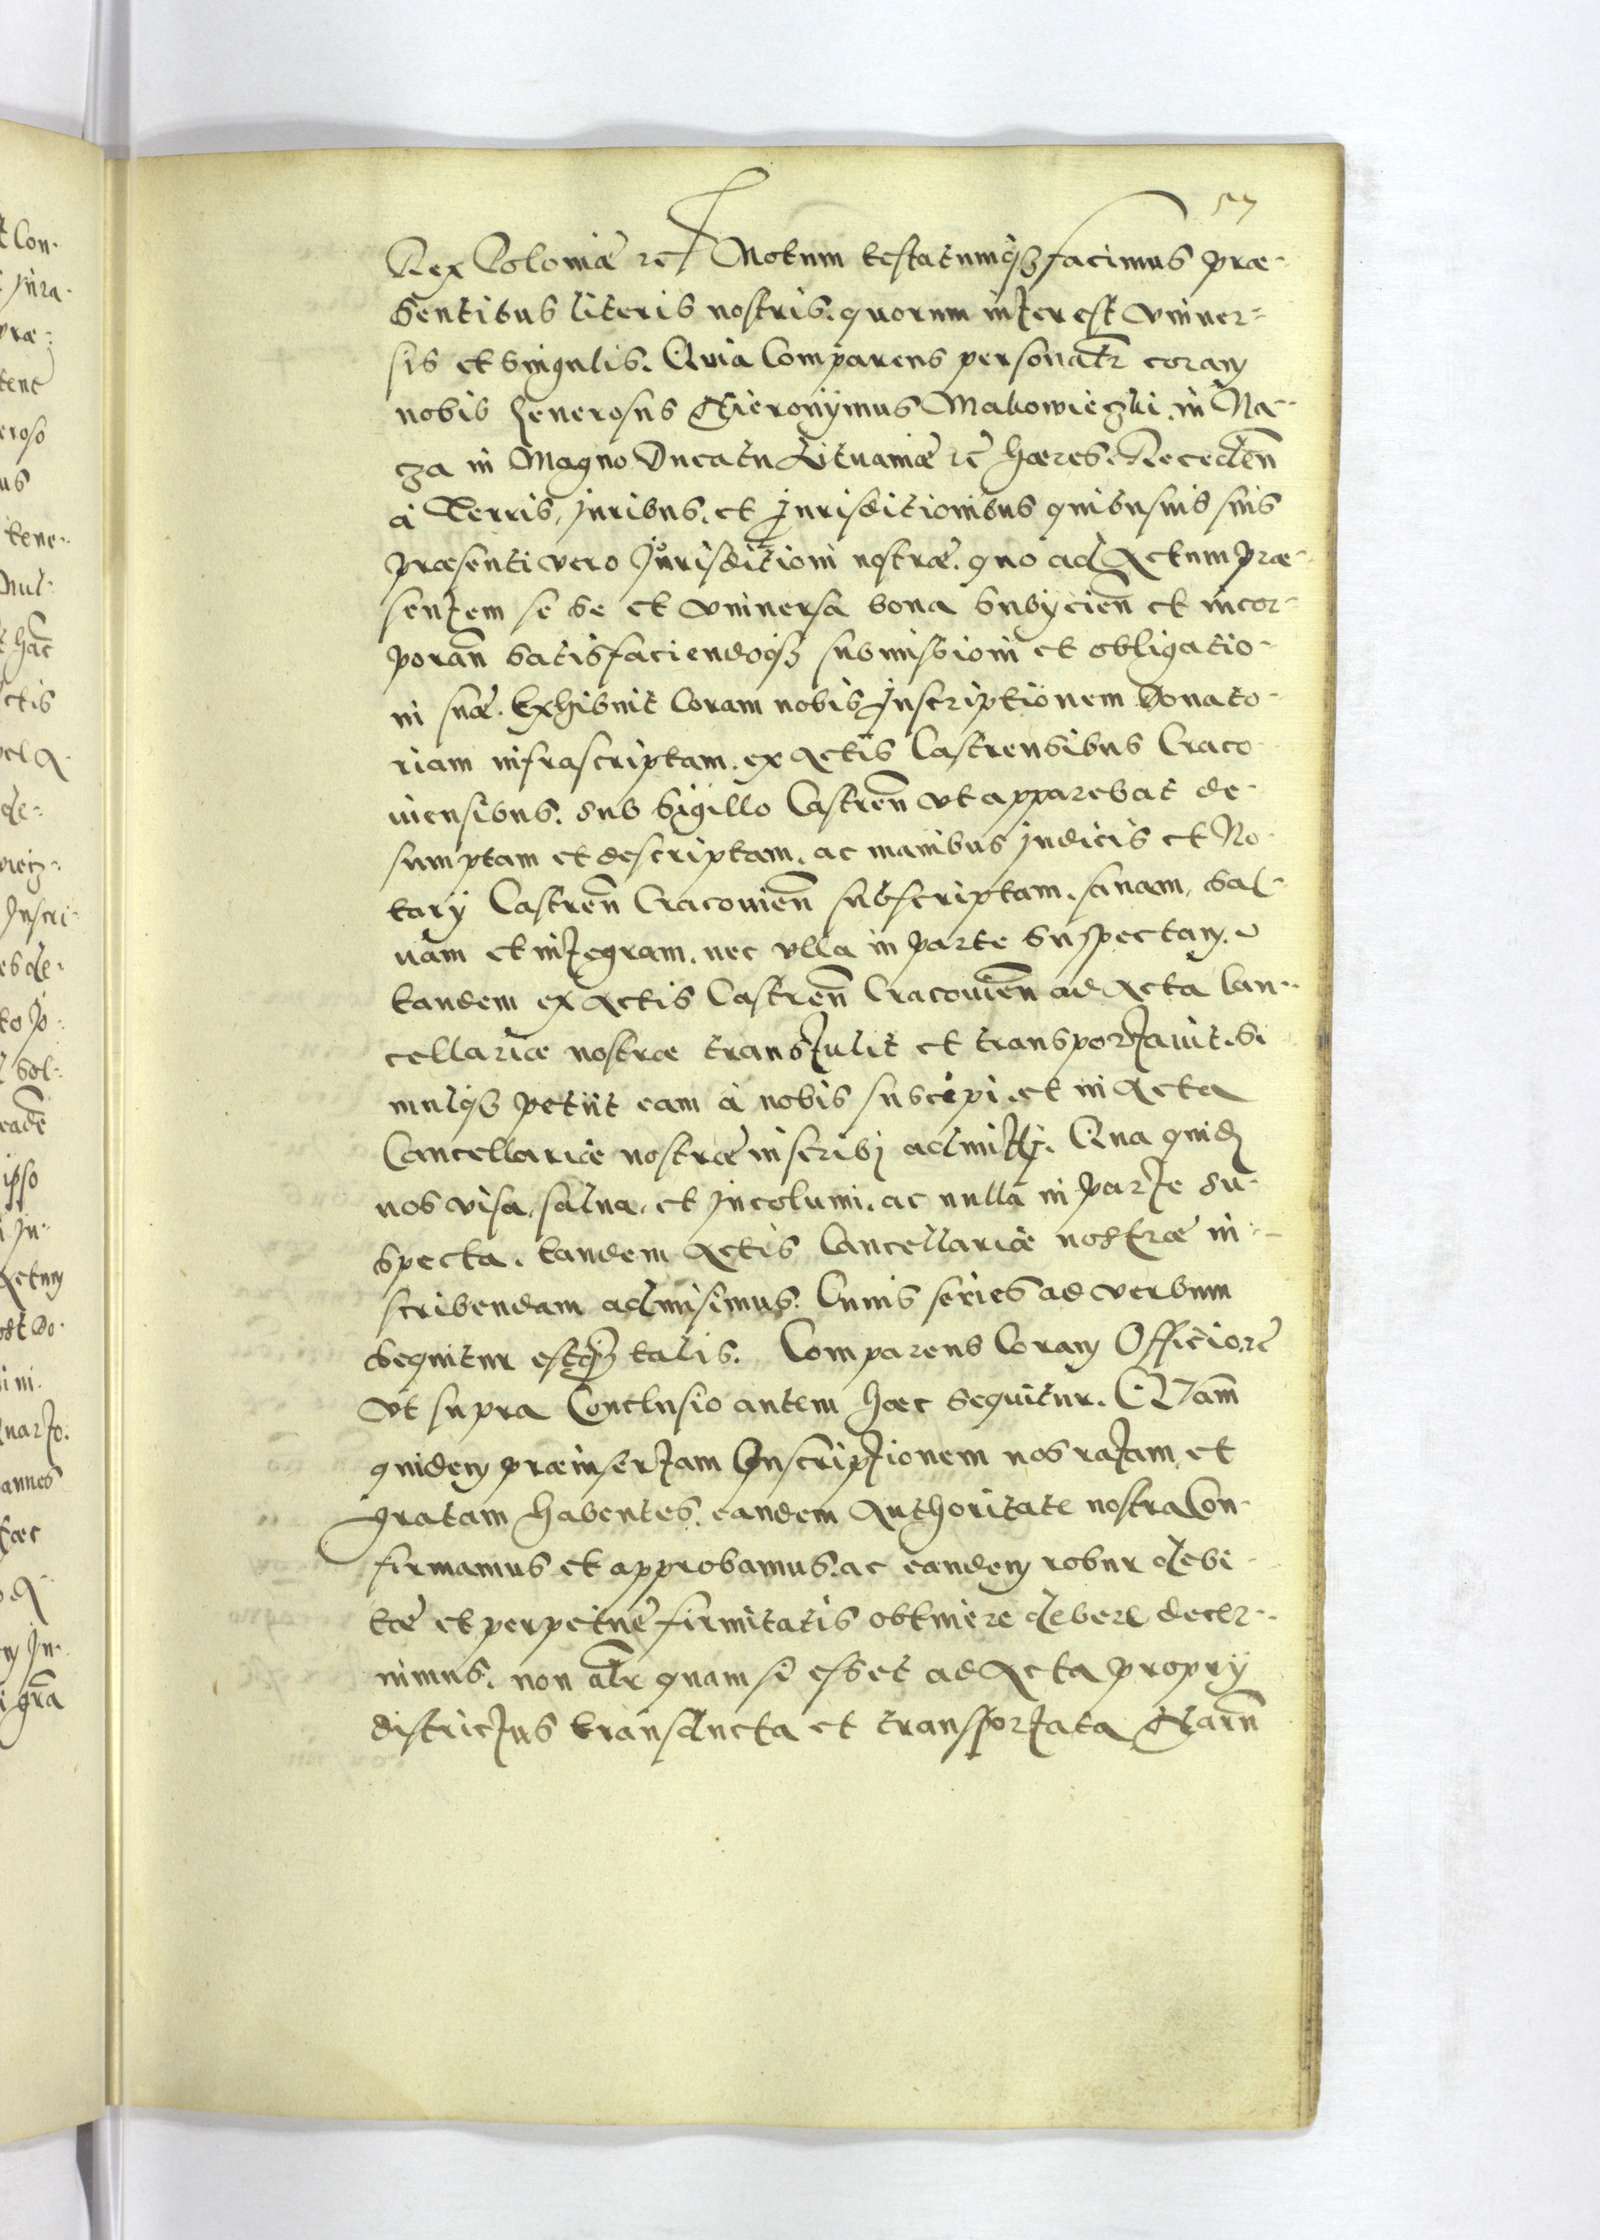 57
Rex Poloniæ etc Notum testatumq3 facimus præ-
sentibus literis nostris. quorum interest vniuer-
sis et singulis. Quia Comparens personatr coram
nobis Generosus Hieronÿmus Makowieczki. in Na-
cza in Magno Ducatu Lituaniæ etc hæres. Receden
à Terris, juribus. et Jurisditionibus quibusuis suis
præsenti vero Jurisditioni nostræ. quo ad Actum præ-
sentem se se et vniuersa bona subÿcien et incor-
poran satisfaciendoq3 submissioni et obligatio-
ni suæ. Exhibuit Coram nobis Inscriptionem Donato-
riam infrascriptam. ex Actis Castrensibus Craco
uiensibus. sub Sigillo Castren vt apparebat de-
sumptam et descriptam. ac manibus judicis et No-
tarÿ Castren Cracouien subscriptam. sanam, sal-
uam et integram. nec vlla in parte suspectam.
tandem ex Actis Castren Cracouien ad Acta Can-
cellariæ nostræ transtulit et transportauit. Si
mulq3 petiit eam à nobis suscipi. et in Acta
Cancellariæ nostræ inscribj admittj. Qua quid
nos visa, salua, et Jncolumi. ac nulla in parte su-
specta. tandem Actis Cancellariæ nostræ in-
scribendam admisimus. Cuius series ad verbum
sequitur estq3 talis. Comparens Coram Officio etc
vt supra Conclusio autem hæc sequitur. QVam
quidem præinsertam Inscriptionem nos ratam et
gratam habentes. eandem Authoritate nostra Con-
firmamus et approbamus. ac eandem robur debi-
tæ et perpetuæ firmitatis obtinere debere decer-
nimus. non alr quam si esset ad Acta proprÿ
districtus transducta et transportata Harn